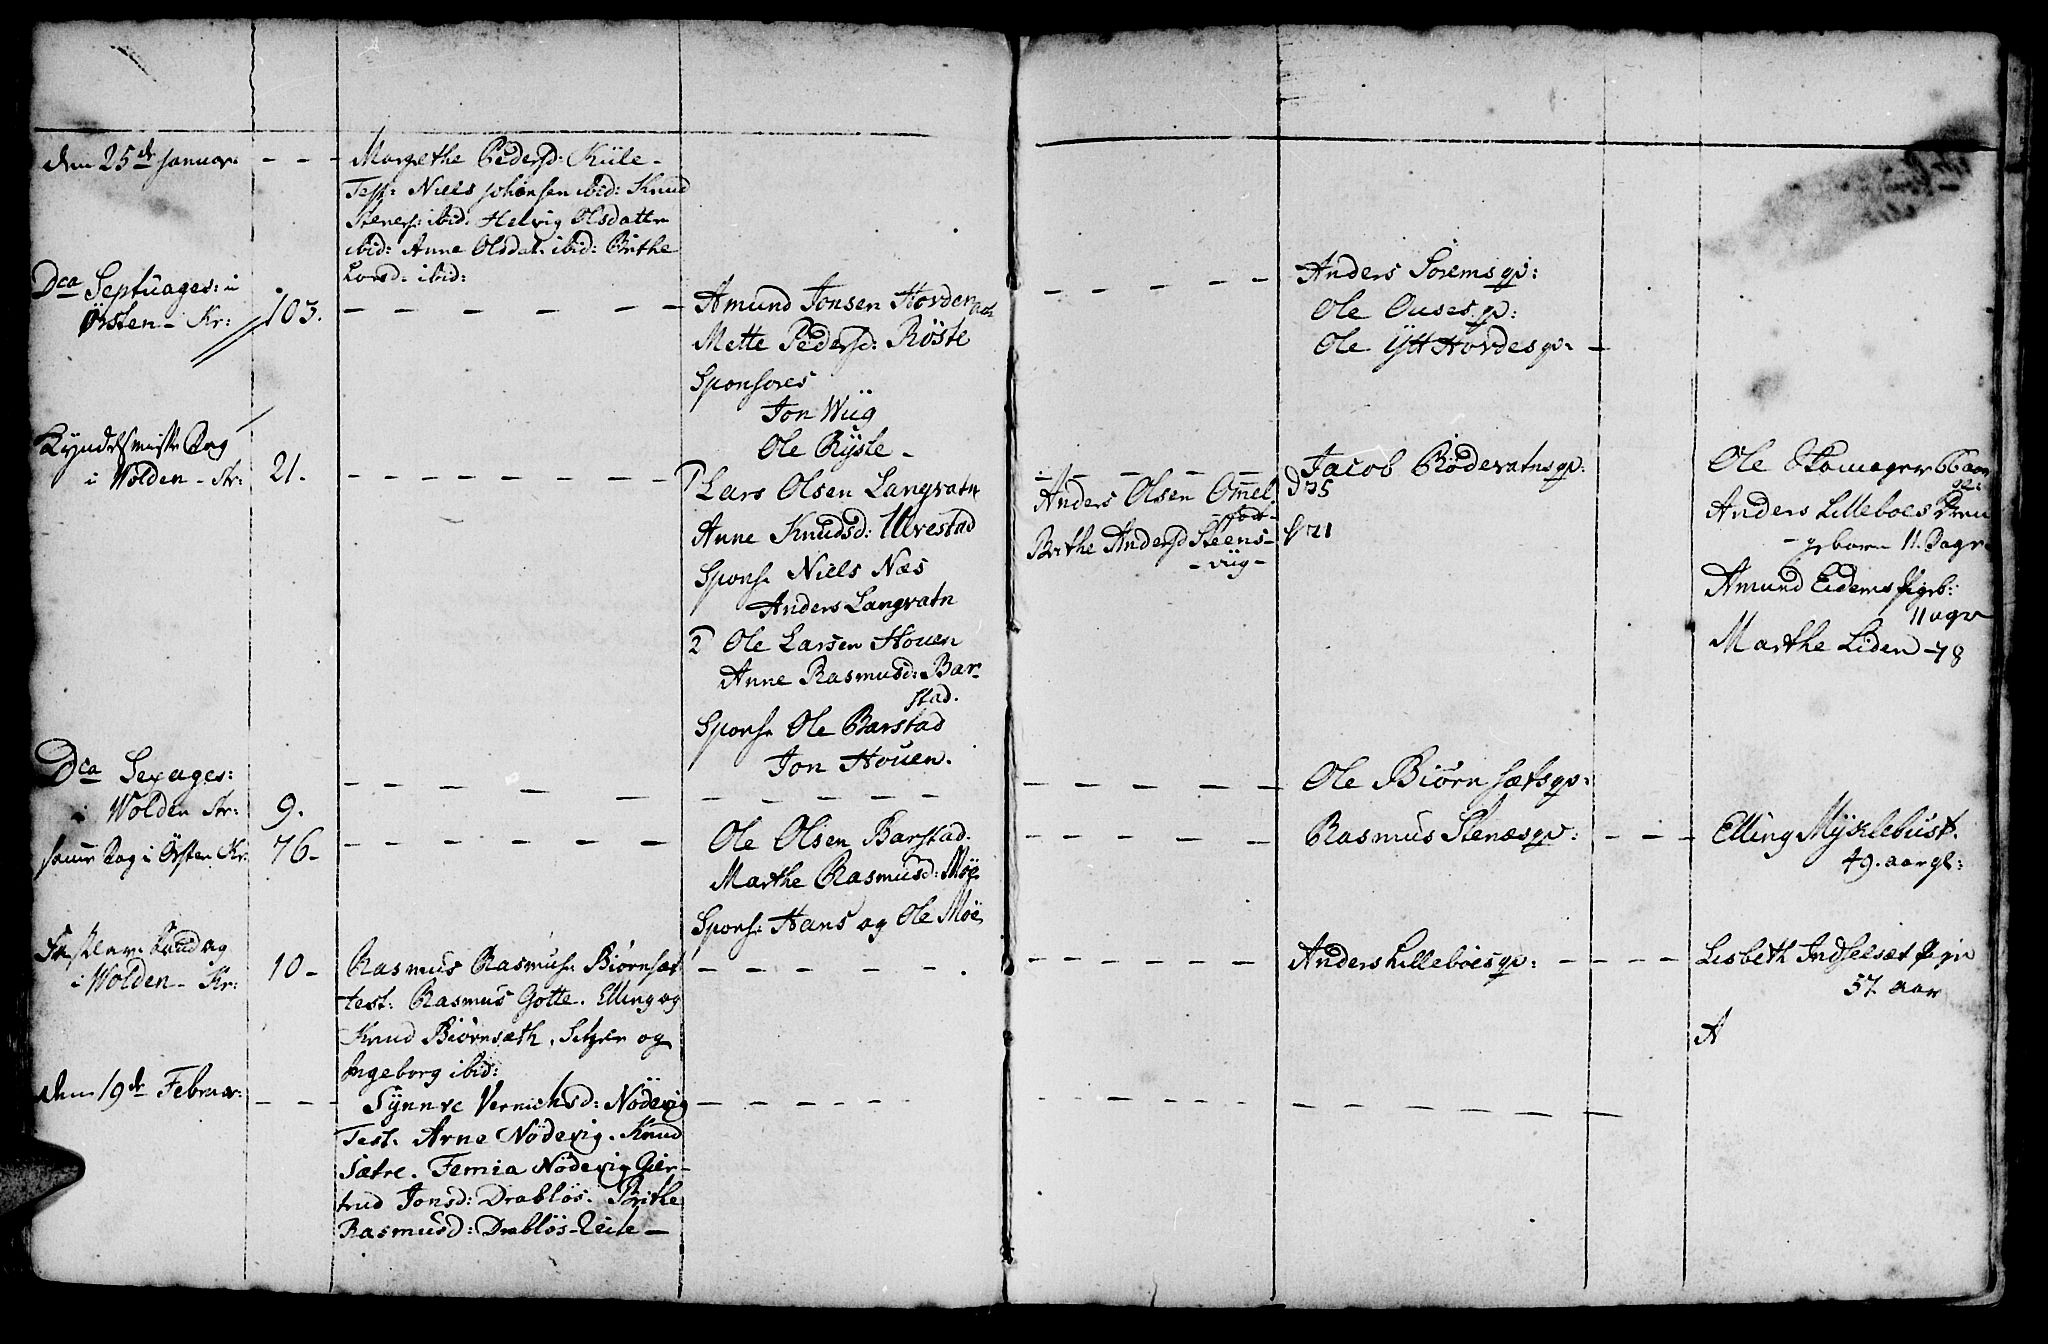 den 25de Januar:
Margethe Pedersd: Küle -
Test: Niels Johansen ibid: Knud
Stenes: ibid: Helvig Olsdatter
ibid: Anne Olsdat: ibid: Brithe
Larsd: ibid:
Dca Septuages: i
Örsten - Kr:
103.
Amund Jonsen Hovden
Mette Pedersd: Röste
Sponsores
Jon Wiig
Ole Ryste -
Anders Soremsqv:
Ole Ousesqv:
Ole Ytt Hovdesqv: -
Kyndelsmisse Dag
i Wolden - Kr:
21.
1 Lars Olsen Langvatn
Anne Knudsd: Ulvestad
Spons: Niels Næs
Anders Langvatn
2 Ole Larsen Houen
Anne Rasmusd: Bar-
stad.
Spons: Ole Barstad
Jon Houen.
Anders Olsen Omel
Brithe Andersd Steens-
- viig -
Jacob Rödevatnsqv:
Ole 66 aar
Anders Lilleboes
- geboren 11. Dage
Amund Eidems
11 uger
Marthe Liden - 78
Dca Sexages:
i Wolden Kr:
9.
Ole Biörnsætsqv:
samme Dag i Örsten Kr:
76 -
Ole Olsen Barstad.
Marthe Rasmusd: Möe
Spons: Hans og Ole Möe
Rasmus Stenæsqv:
Elling Mÿklebust.
49. aar gl:
Fastelav: Söndag
i Wolden - Kr:
10 -
Rasmus Rasmus: Biörnsæt
test: Rasmus Gotte. Elling og
Knud Biörnsæth, og
Ingeborg ibid:
Anders Lilleboesqv:
Lisbeth Indselset
57 aar
A
den 19de Februar:
Sÿnnve Vernichsd: Nödevig
Test. Arne Nödevig. Knud
Sætre. Femia Nödevig Gier-
trud Jonsd: Drablös. Brithe
Rasmusd: Drablös-Leite -